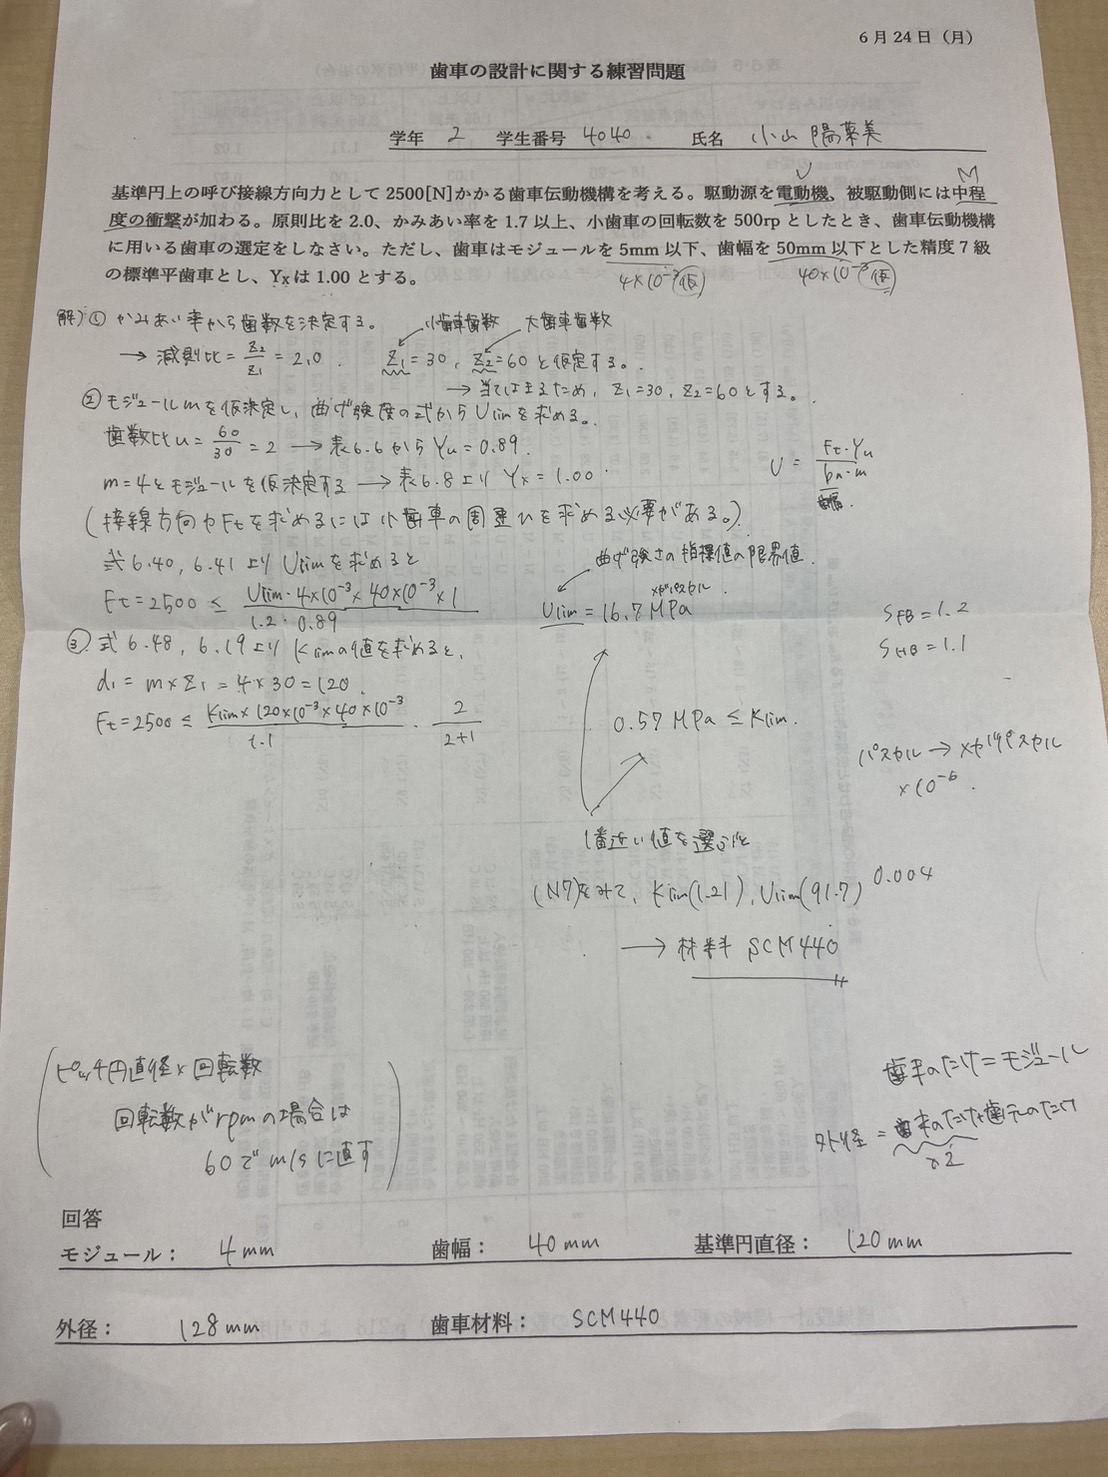 6月24日（月）
歯車の設計に関する練習問題
学年 2 学生番号 4040 氏名 小山 陽菜美
U M
基準円上の呼び接線方向力として2500[N]かかる歯車伝動機構を考える。駆動源を電動機、被駆動側には中程
度の衝撃が加わる。原則比を2.0、かみあい率を1.7以上、小歯車の回転数を500rpとしたとき、歯車伝動機構
に用いる歯車の選定をしなさい。ただし、歯車はモジュールを5mm以下、歯幅を50mm以下とした精度7級
の標準平歯車とし、YXは1.00とする。
4×10⁻³(仮) 40×10⁻³(仮)
解)① かみあい率から歯数を決定する。
小歯車歯数 大歯車歯数
→ 減則比=Z2/Z1=2.0. Z1=30, Z2=60と仮定する。
→ 当てはまるため, Z1=30, Z2=60とする。
② モジュールmを仮決定し, 曲げ強度の式からUlimを求める。
歯数比u=60/30=2 → 表6.6から Yu=0.89.
U = Ft・Yu/bn・m
歯幅
m=4とモジュールを仮決定する → 表6.8より Yx=1.00.
(接線方向力Ftを求めるには小歯車の周速υを求める必要がある。)
式6.40, 6.41より Ulimを求めると
曲げ強さの指標値の限界値.
Ft=2500 ≤ Ulim・4×10⁻³×40×10⁻³×1/1.2・0.89
メガパスカル
Ulim=16.7MPa
SFB=1.2
SHB=1.1
③ 式6.48, 6.19より Klimの値を求めると,
d1=m×Z1=4×30=120.
Ft=2500 ≤ Klim×120×10⁻³×40×10⁻³/1.1・2/2+1
0.57MPa ≤ Klim.
パスカル → メガパスカル
×10⁻⁶.
1番近い値を選ぶと
(N7)をみて, Klim(1.21), Ulim(91.7) 0.004
→ 材料 SCM440
ピッチ円直径×回転数
回転数がrpmの場合は
60でm/sに直す
歯末のたけ=モジュール
外径=歯末のたけ+歯元のたけ
×2
回答
モジュール： 4mm 歯幅： 40mm 基準円直径： 120mm
外径： 128mm 歯車材料： SCM440